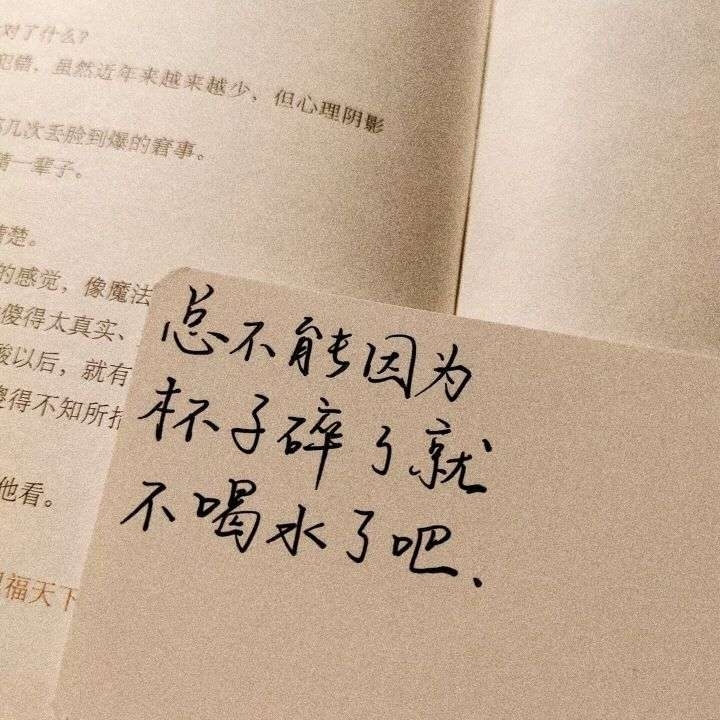 对了什么?
犯错，虽然近年来越来越少，但心理阴影
几次丢脸到爆的窘事。
一辈子。
清楚。
的感觉，像魔法
傻得太真实、
以后，就有
得不知所措
他看。
福天下
总不能因为
杯子碎了就
不喝水了吧、